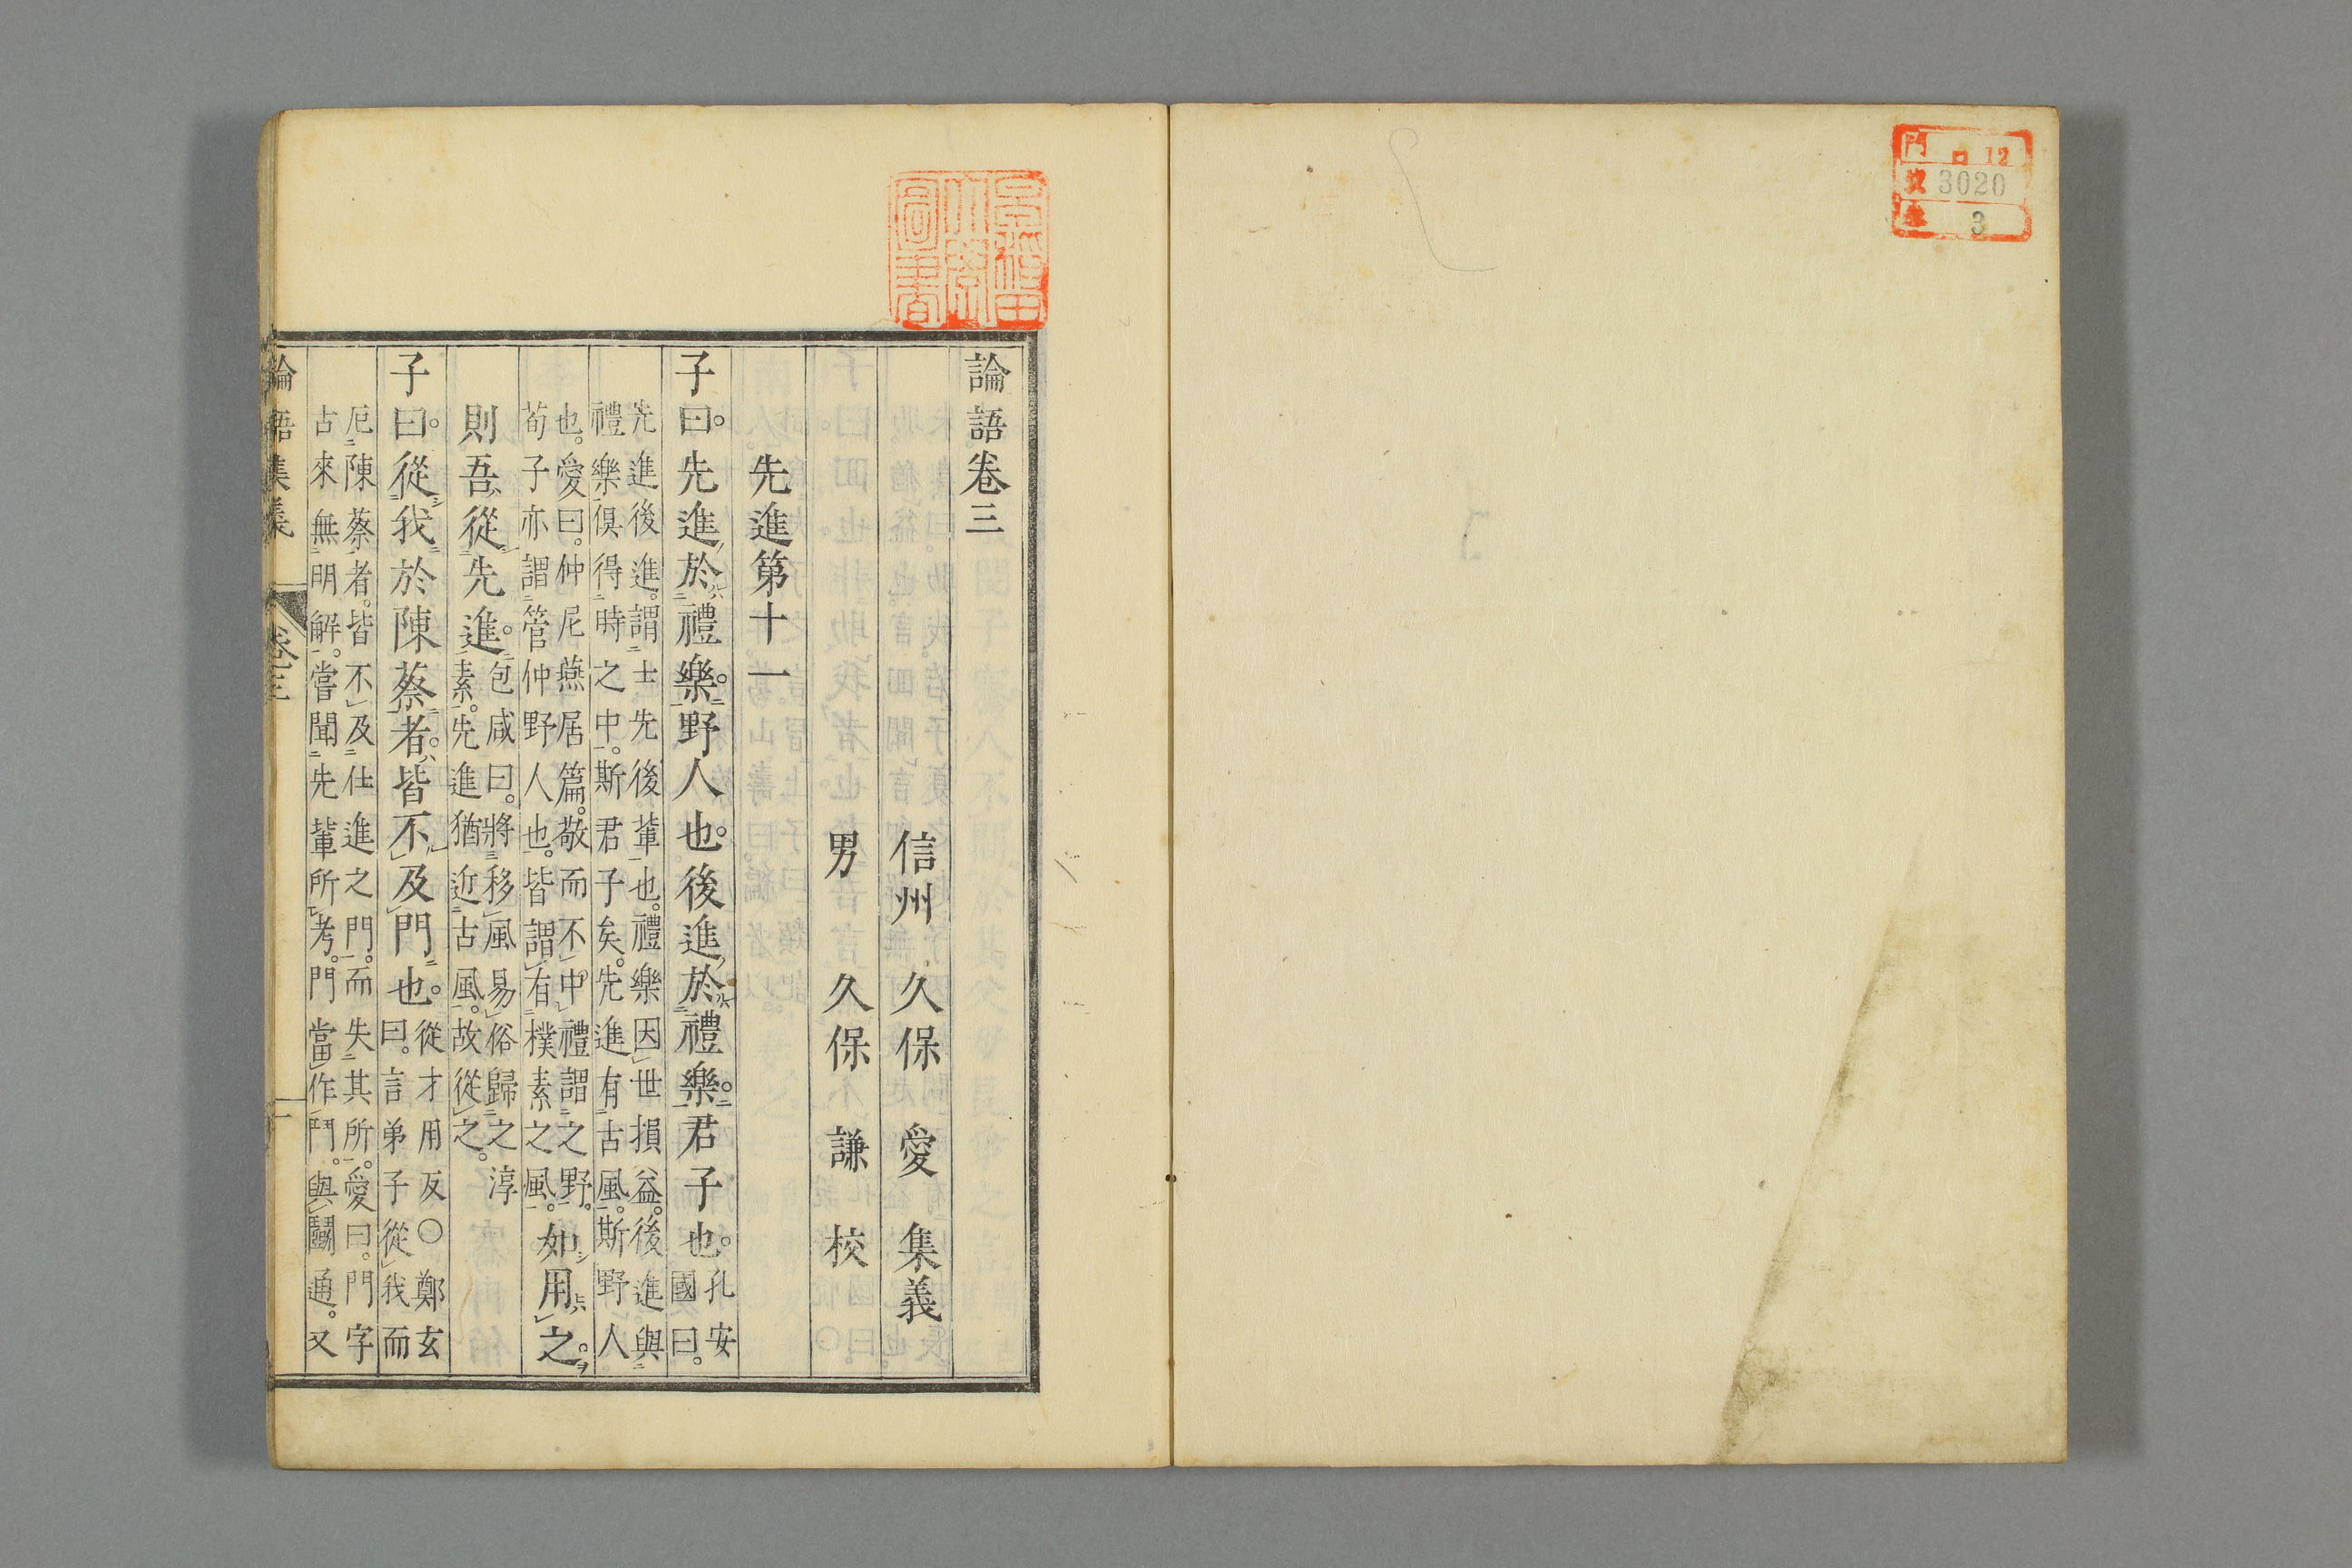 門 ロ 12
號 3020
巻 3
早稲田大學圖書
論語卷三
信州 久保 愛 集義
男 久保 謙 校
先進第十一
子曰。先進於禮樂。野人也。後進於禮樂。君子也。孔安
國曰。
先進後進。謂士先後輩也。禮樂因世損益。後進與
禮樂俱得時之中。斯君子矣。先進有古風。斯野人
也。愛曰。仲尼燕居篇。敬而不中禮謂之野。
荀子亦謂管仲野人也。皆謂有樸素之風。如用之。
則吾從先進。包咸曰。將移風易俗歸之淳
素。先進猶近古風。故從之。
子曰。從我於陳蔡者。皆不及門也。從才用反○鄭玄
曰。言弟子從我而
厄陳蔡者。皆不及仕進之門。而失其所。愛曰。門字
古來無明解。嘗聞先輩所考。門當作鬥。與鬭通。又
論語集義 卷三 一